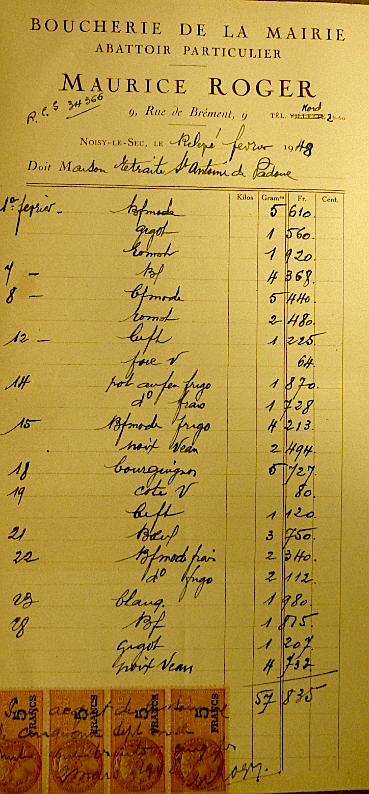 BOUCHERIE DE LA MAIRIE
ABATTOIR PARTICULIER
MAURICE ROGER
R.C.S 34366
9, Rue de Brément, 9 TÉL. Nord
NOISY-LE-SEC, LE Relevé fevrier 1948
Doit Maison Retraite St Antoine de Padoue
Kilos Gram^es Fr. Cent.
1er fevrier - Bf mode 5 610.
gigot 1 560.
1 920.
7 - Bf 4 368.
8 - Bf mode 5 440.
2 480.
12 - Bift 1 225
foie V 64.
14 pot au feu frigo 1 870.
d° frais 1 728
15 Bf mode frigo 4 213
noix Veau 2 494
18 bourguignon 5 727
19 cote V 80.
Bift 1 120
21 Bœuf 3 750.
22 Bf mode frais 2 340.
d° frigo 2 112
23 blanq. 1 980
28 Bf 1 875.
gigot 1 207
noix Veau 4 732
57 835
5 FRANCS 5 FRANCS 5 FRANCS 5 FRANCS